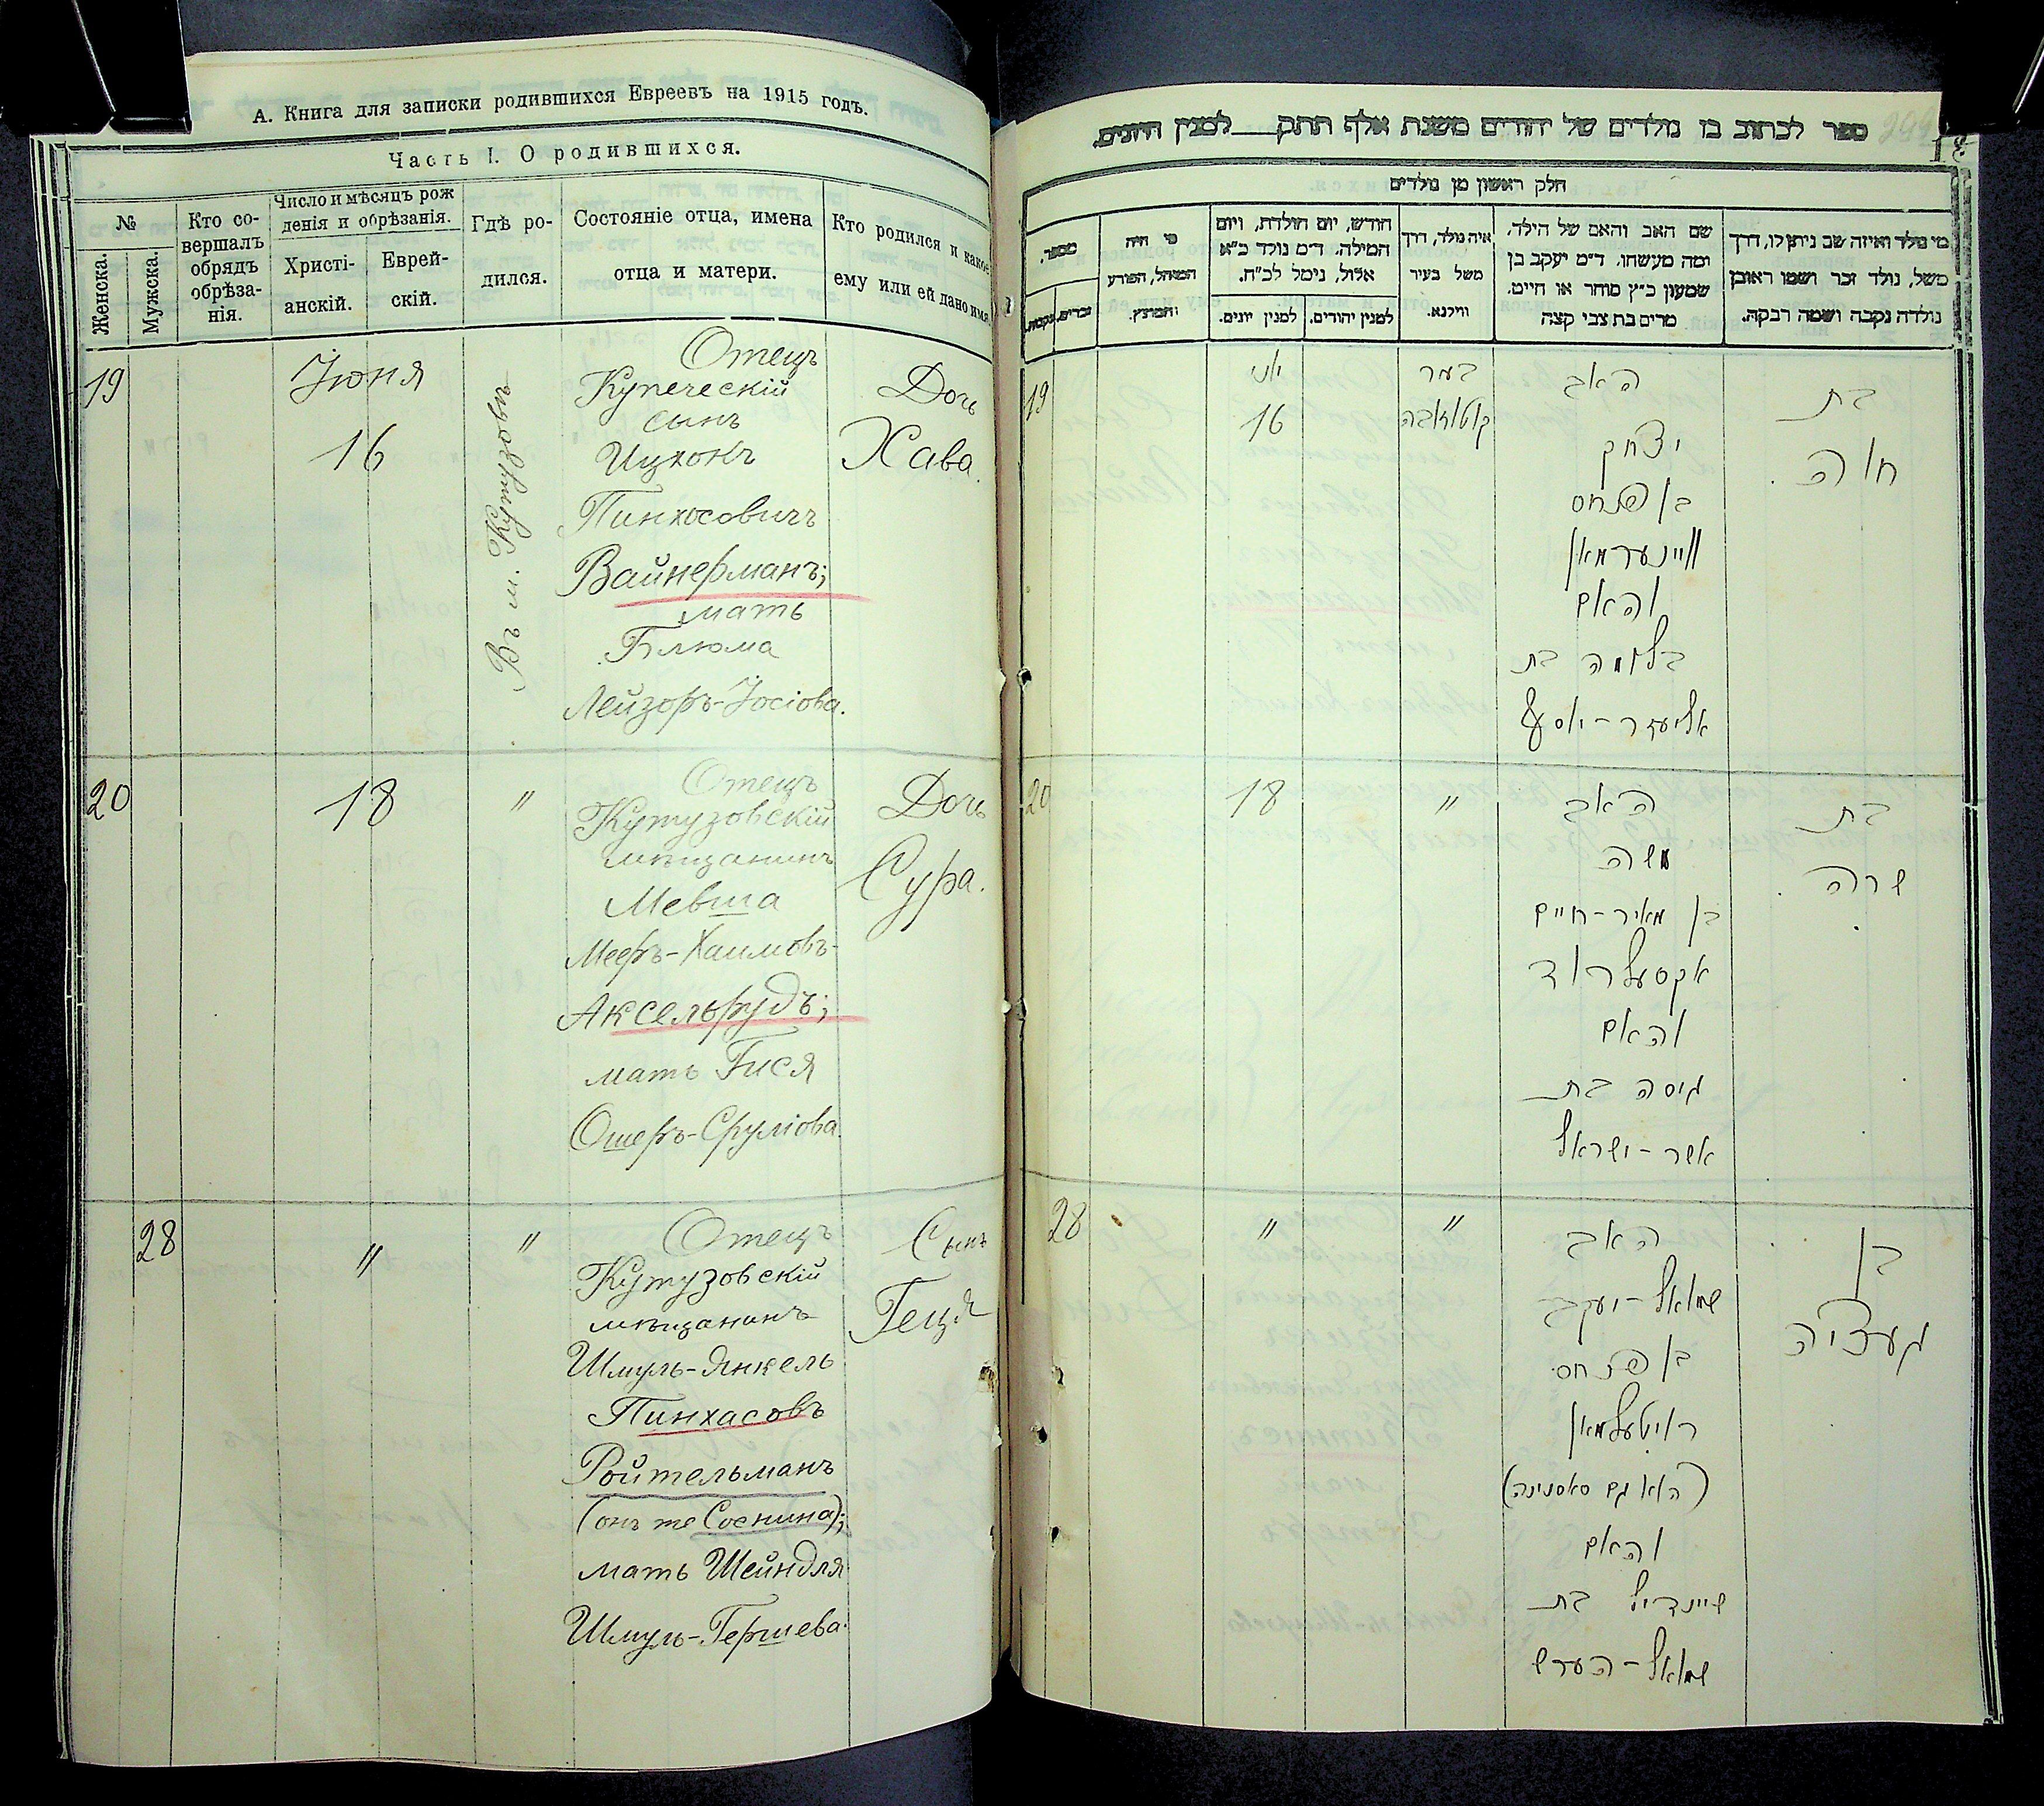 А. Книга для записки родившихся Евреевъ на 1915 годъ.
Часть I. О родившихся.
№
Женска.
Мужска.
Кто со-
вершалъ
обрядъ
обрѣза-
нія.
Число и мѣсяцъ рож
денія и обрѣзанія.
Христі-
анскій.
Еврей-
скій.
Гдѣ ро-
дился.
Состояніе отца, имена
отца и матери.
Кто родился и какое
ему или ей дано имя
19
Іюня
16
Въ м. Кутузовъ
Отецъ
Купеческій
сынъ
Ицхокъ
Пинхосовичъ
Вайнерманъ;
мать
Блюма
Лейзоръ-Іосіова.
Дочь
Хава.
20
18
"
Отецъ
Кутузовскій
мѣщанинъ
Мевша
Мееръ-Хаимовъ-
Аксельрудъ;
мать Гися
Ошеръ-Сруліова.
Дочь
Сура.
28
"
"
Отецъ
Кутузовскій
мѣщанинъ
Шмуль-Янкель
Пинхасовъ
Ройтельманъ
(онъ же Соснина);
мать Шейндля
Шмуль-Гершева.
Сынъ
Геця
ספר לכתוב בו נולדים של יהודים משנת אלף תתק___למנין היונים.
חלק ראשון מן נולדים
מי נולד ואיזה שם ניתן לו, דרך
משל, נולד זכר ושמו ראובן
נולדה נקבה ושמה רבקה.
שם האב והאם של הילד,
ומה מעשהו. ד״מ יעקב בן
שמעון כ״ץ סוחר או חייט.
מרים בת צבי קצה
איה נולד, דרך
משל בעיר
ווילנא.
חודש, יום הולדת, ויום
המילה. ד״מ נולד כ״א
אלול, נימל לכ״ח.
למנין יהודים.
למנין יונים.
מי היה
המוהל, הפורע
והמוצץ.
מספר.
זכרים.
נקבות.
19
יוני
16
בעיר
קוטוזאבה
האב
יצחק
בן פנחס
וויינערמאן
והאם
בלומה בת
אליעזר-יוסף
בת
חוה.
20
18
"
האב
משה
בן מאיר-חיים
אקסעלרוד
והאם
גיסה בת
אשר-ישראל
בת
שרה.
28
"
"
האב
שמואל-יעקב
בן פנחס
רויטעלמאן
(הוא גם סאסנינה)
והאם
שיינדיל בת
שמואל-הערש
בן
געציה